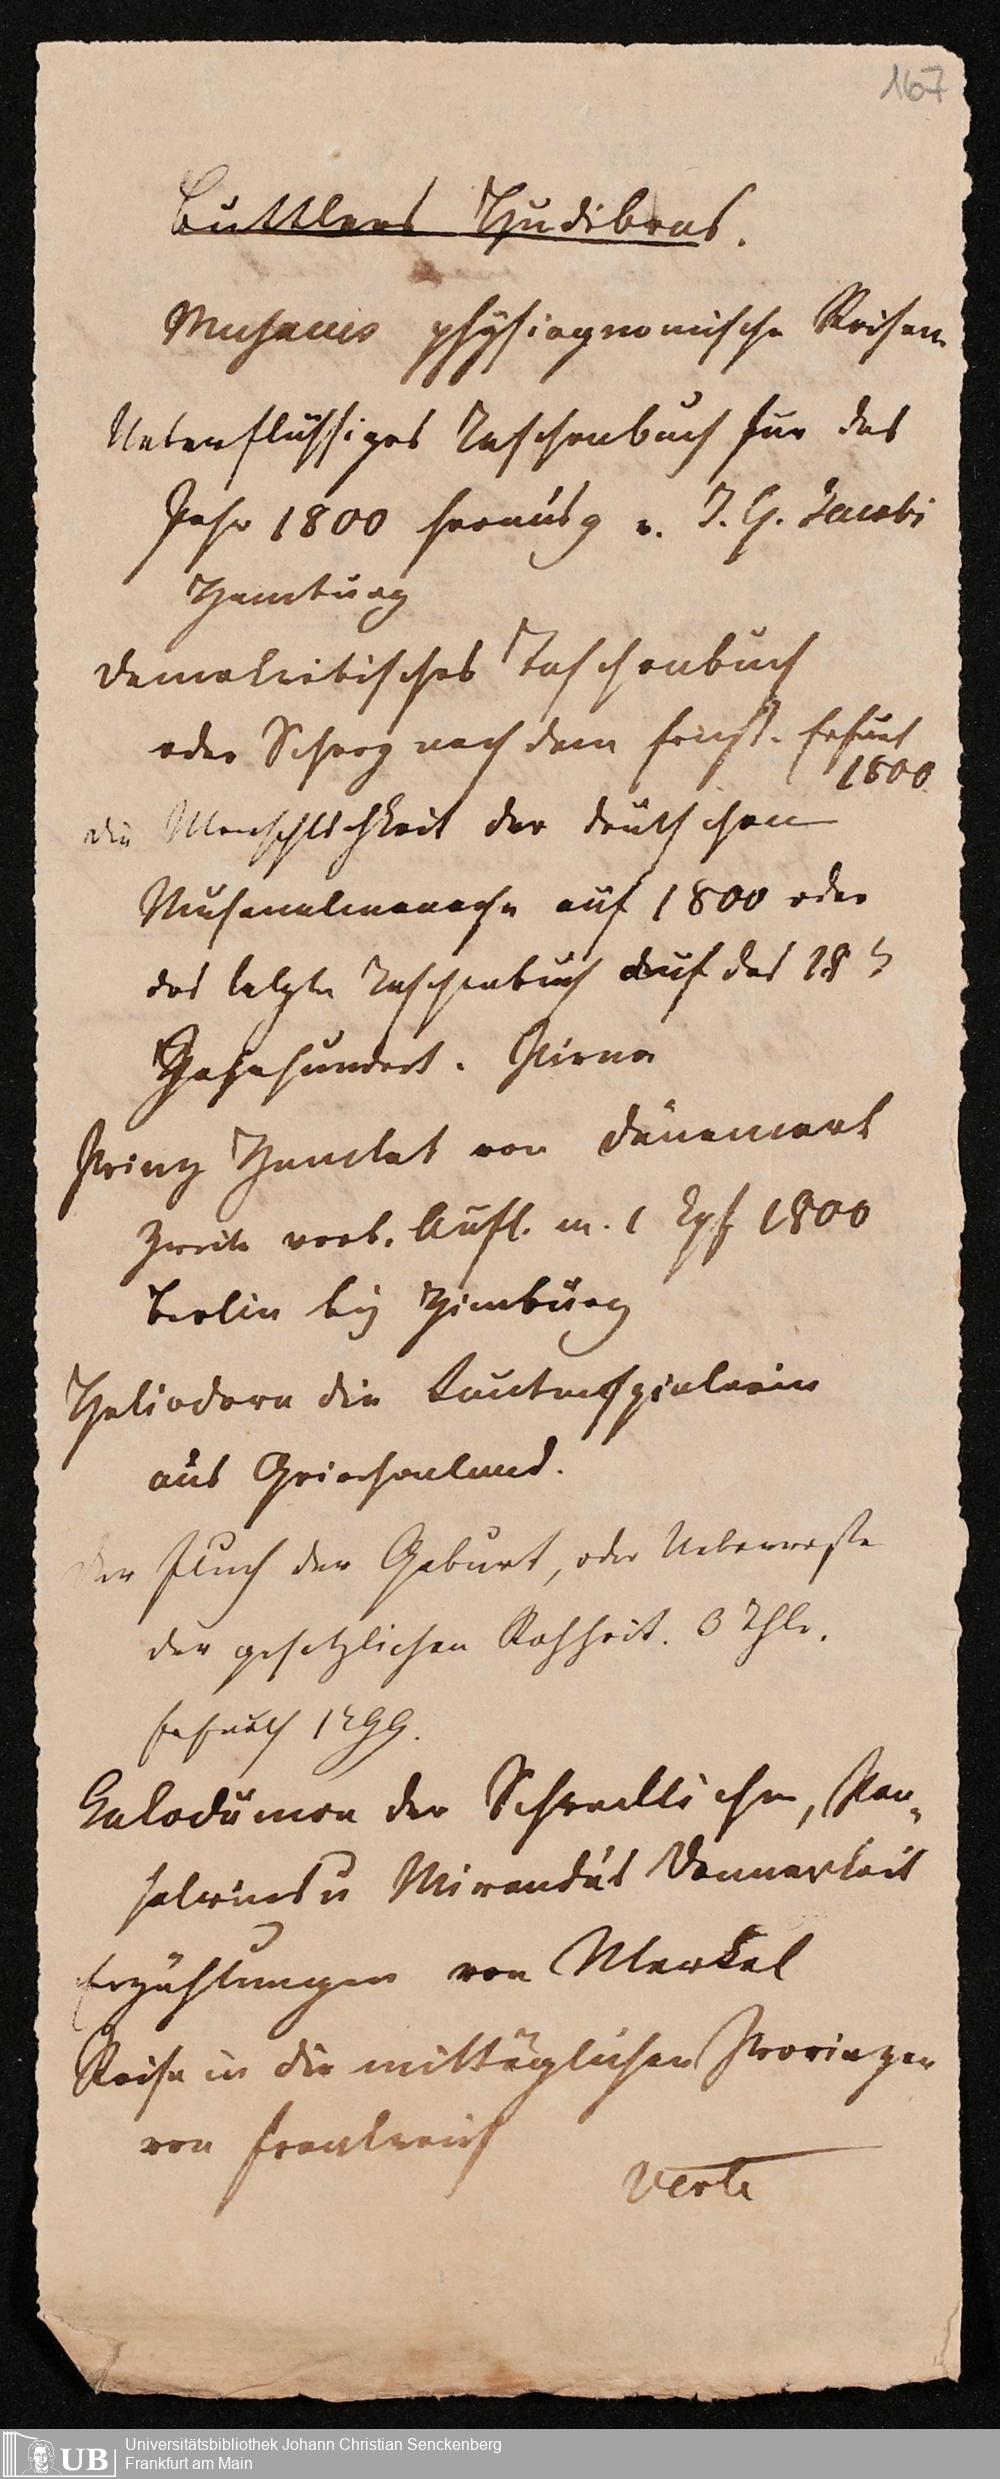 167
Buttlers Hudibras.
Musaeus physiognomische Reisen
Ueberflüssiges Taschenbuch für das
Jahr 1800 herausg v. J. G. Jacobi
Hamburg
Demokritisches Taschenbuch
oder Scherz nach dem Ernst. Erfurt
1800
Die Menschlichkeit der deutschen
Musenalmanache auf 1800 oder
das letzte Taschenbuch auf das 18
Jahrhundert. Pirna
Prinz Hamlet von Dänemark
Zweite verb. Aufl. m. 1 Kpf 1800
Berlin bey Himburg
Heliodora die Lautenspielerin
aus Griechenland.
Der Fluch der Geburt, oder Ueberreste
der gesetzlichen Rohheit. 3 Thle.
Erfurth 1799.
der Schreckliche,
u Mirandas
Erzählungen von Merkel
Reise in die mittäglichen Provinzen
von Frankreich
Verte
Universitätsbibliothek Johann Christian Senckenberg
UB
Frankfurt am Main